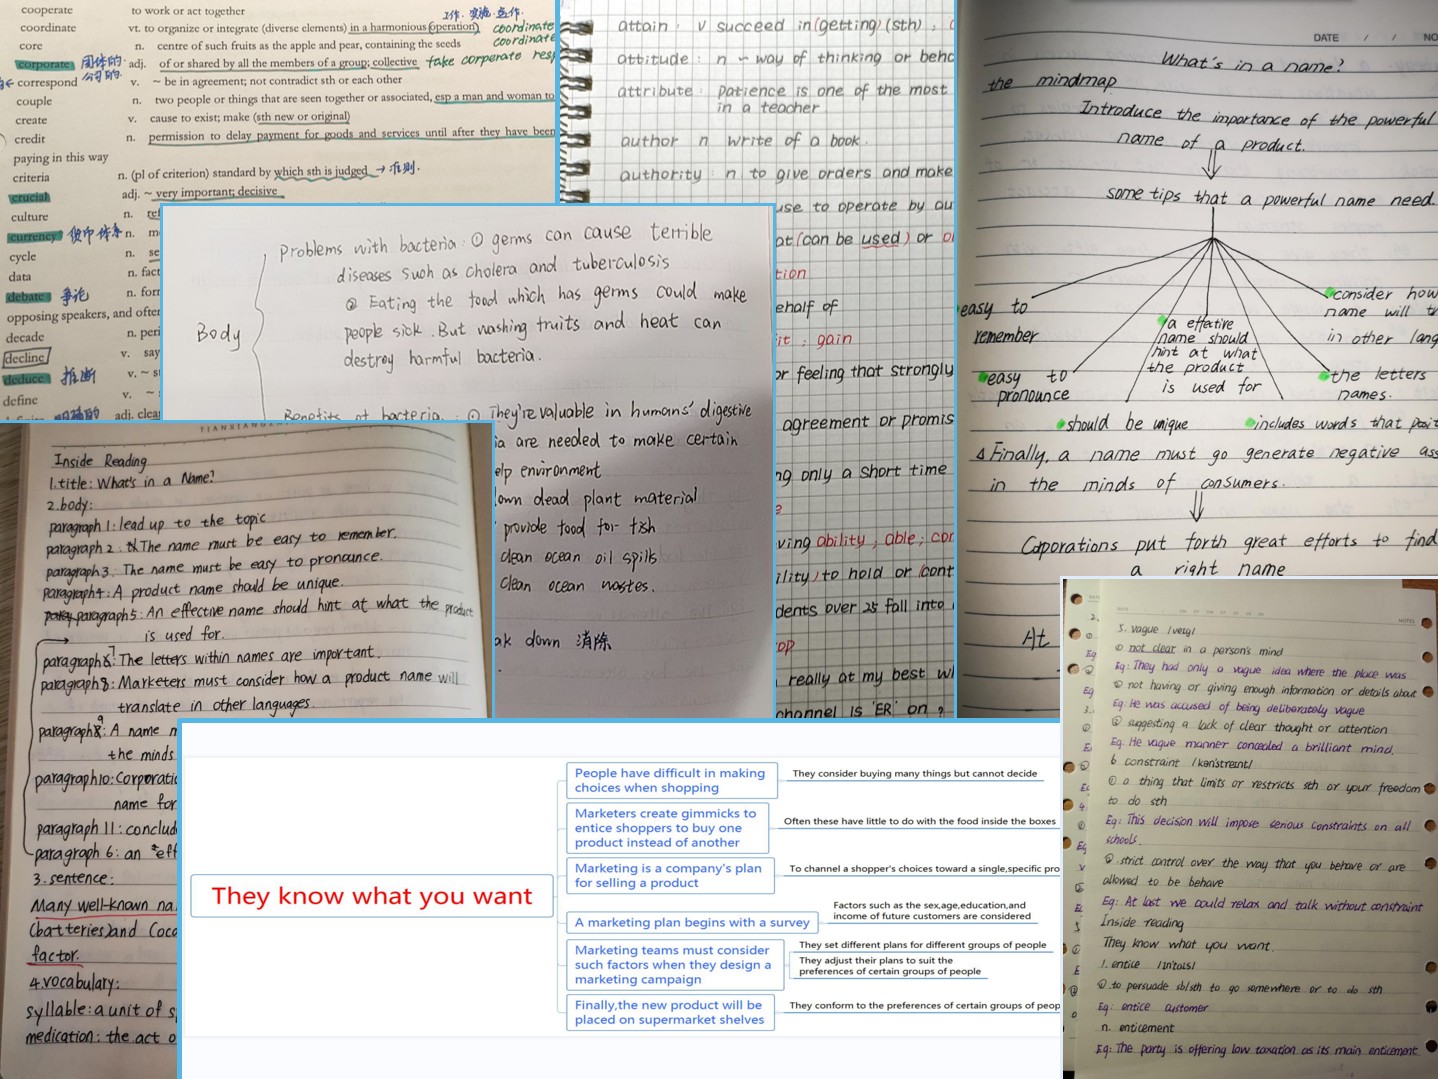 cooperate to work or act together
工作. 实施. 运作.
coordinate vt. to organize or integrate (diverse elements) in a harmonious (operation) coordinate
core n. centre of such fruits as the apple and pear, containing the seeds coordinate
corporate 团体的. 公司的. adj. of or shared by all the members of a group; collective take corperate resp
correspond v. ~ be in agreement; not contradict sth or each other
couple n. two people or things that are seen together or associated, esp a man and woman to
create v. cause to exist; make (sth new or original)
credit n. permission to delay payment for goods and services until after they have been
paying in this way
criteria n. (pl of criterion) standard by which sth is judged → 准则.
crucial adj. ~ very important; decisive
culture n. ref
currency 货币 体系 n. m
cycle n. se
data n. fact
debate 争论 n. forr
opposing speakers, and often
decade n. peri
decline v. say
deduce 推断 v. ~ s
define v. ~
明确的 adj. clea
attain : v succeed in (getting) (sth) ;
attitude : n ~ way of thinking or beha
attribute : patience is one of the most
in a teacher
author n write of a book.
authority : n to give orders and make
use to operate by au
at (can be used) or
tion
ehalf of
it ; gain
or feeling that strongly
agreement or promis
ng only a short time
ving ability ; able ; con
ility) to hold or (cont
dents over 25 fall into
op
really at my best wh
channel is 'ER' on ?
DATE / / NO
What's in a name?
the mindmap
Introduce the importance of the powerful
name of a product.
some tips that a powerful name need.
easy to
remember
easy to
pronounce
should be unique
a effective
name should
hint at what
the product
is used for
includes words that posit
the letters
names.
consider how
name will t
in other lang
△ Finally, a name must go generate negative ass
in the minds of consumers.
Coporations put forth great efforts to find
a right name
At
Body
Problems with bacteria: ① germs can cause terrible
diseases such as cholera and tuberculosis
② Eating the food which has germs could make
people sick. But washing fruits and heat can
destroy harmful bacteria.
Benefits of bacteria: ① They're valuable in humans' digestive
ia are needed to make certain
elp environment
own dead plant material
provide food for fish
clean ocean oil spills
clean ocean wastes.
ak down 消除
Inside Reading
1.title: What's in a Name?
2.body:
paragraph 1: lead up to the topic
paragraph 2: The name must be easy to remember.
paragraph 3: The name must be easy to pronance.
paragraph 4: A product name should be unique.
paragraph 5: An effective name should hint at what the product
is used for.
paragraph 7: The letters within names are important.
paragraph 8: Marketers must consider how a product name will
translate in other languages.
paragraph 9: A name m
the minds
paragraph 10: Corporatic
name for
paragraph 11: conclud
paragraph 6: an "eff
3. sentence:
Many well-known na
(batteries) and Coca
factor.
4.vocabulary:
syllable: a unit of s
medication: the act o
They know what you want
People have difficult in making
choices when shopping
They consider buying many things but cannot decide
Marketers create gimmicks to
entice shoppers to buy one
product instead of another
Often these have little to do with the food inside the boxes
Marketing is a company's plan
for selling a product
To channel a shopper's choices toward a single,specific pro
A marketing plan begins with a survey
Factors such as the sex,age,education,and
income of future customers are considered
Marketing teams must consider
such factors when they design a
marketing campaign
They set different plans for different groups of people
They adjust their plans to suit the
preferences of certain groups of people
Finally,the new product will be
placed on supermarket shelves
They conform to the preferences of certain groups of peop
5. vague /veɪg/
① not clear in a person's mind
Eg: They had only a vague idea where the place was
② not having or giving enough information or details about
Eg. He was accused of being deliberately vague
③ suggesting a lack of clear thought or attention
Eg. He vague manner concealed a brilliant mind.
6 constraint /kənˈstreɪnt/
① a thing that limits or restricts sth or your freedom
to do sth
Eg: This decision will impose serious constraints on all
schools.
② strict control over the way that you behave or are
allowed to be behave
Eg: At last we could relax and talk without constraint
Inside reading
They know what you want.
1. entice /ɪnˈtaɪs/
① to persuade sb/sth to go somewhere or to do sth
Eg: entice customer
n. enticement
Eg: The party is offering low taxation as its main enticement